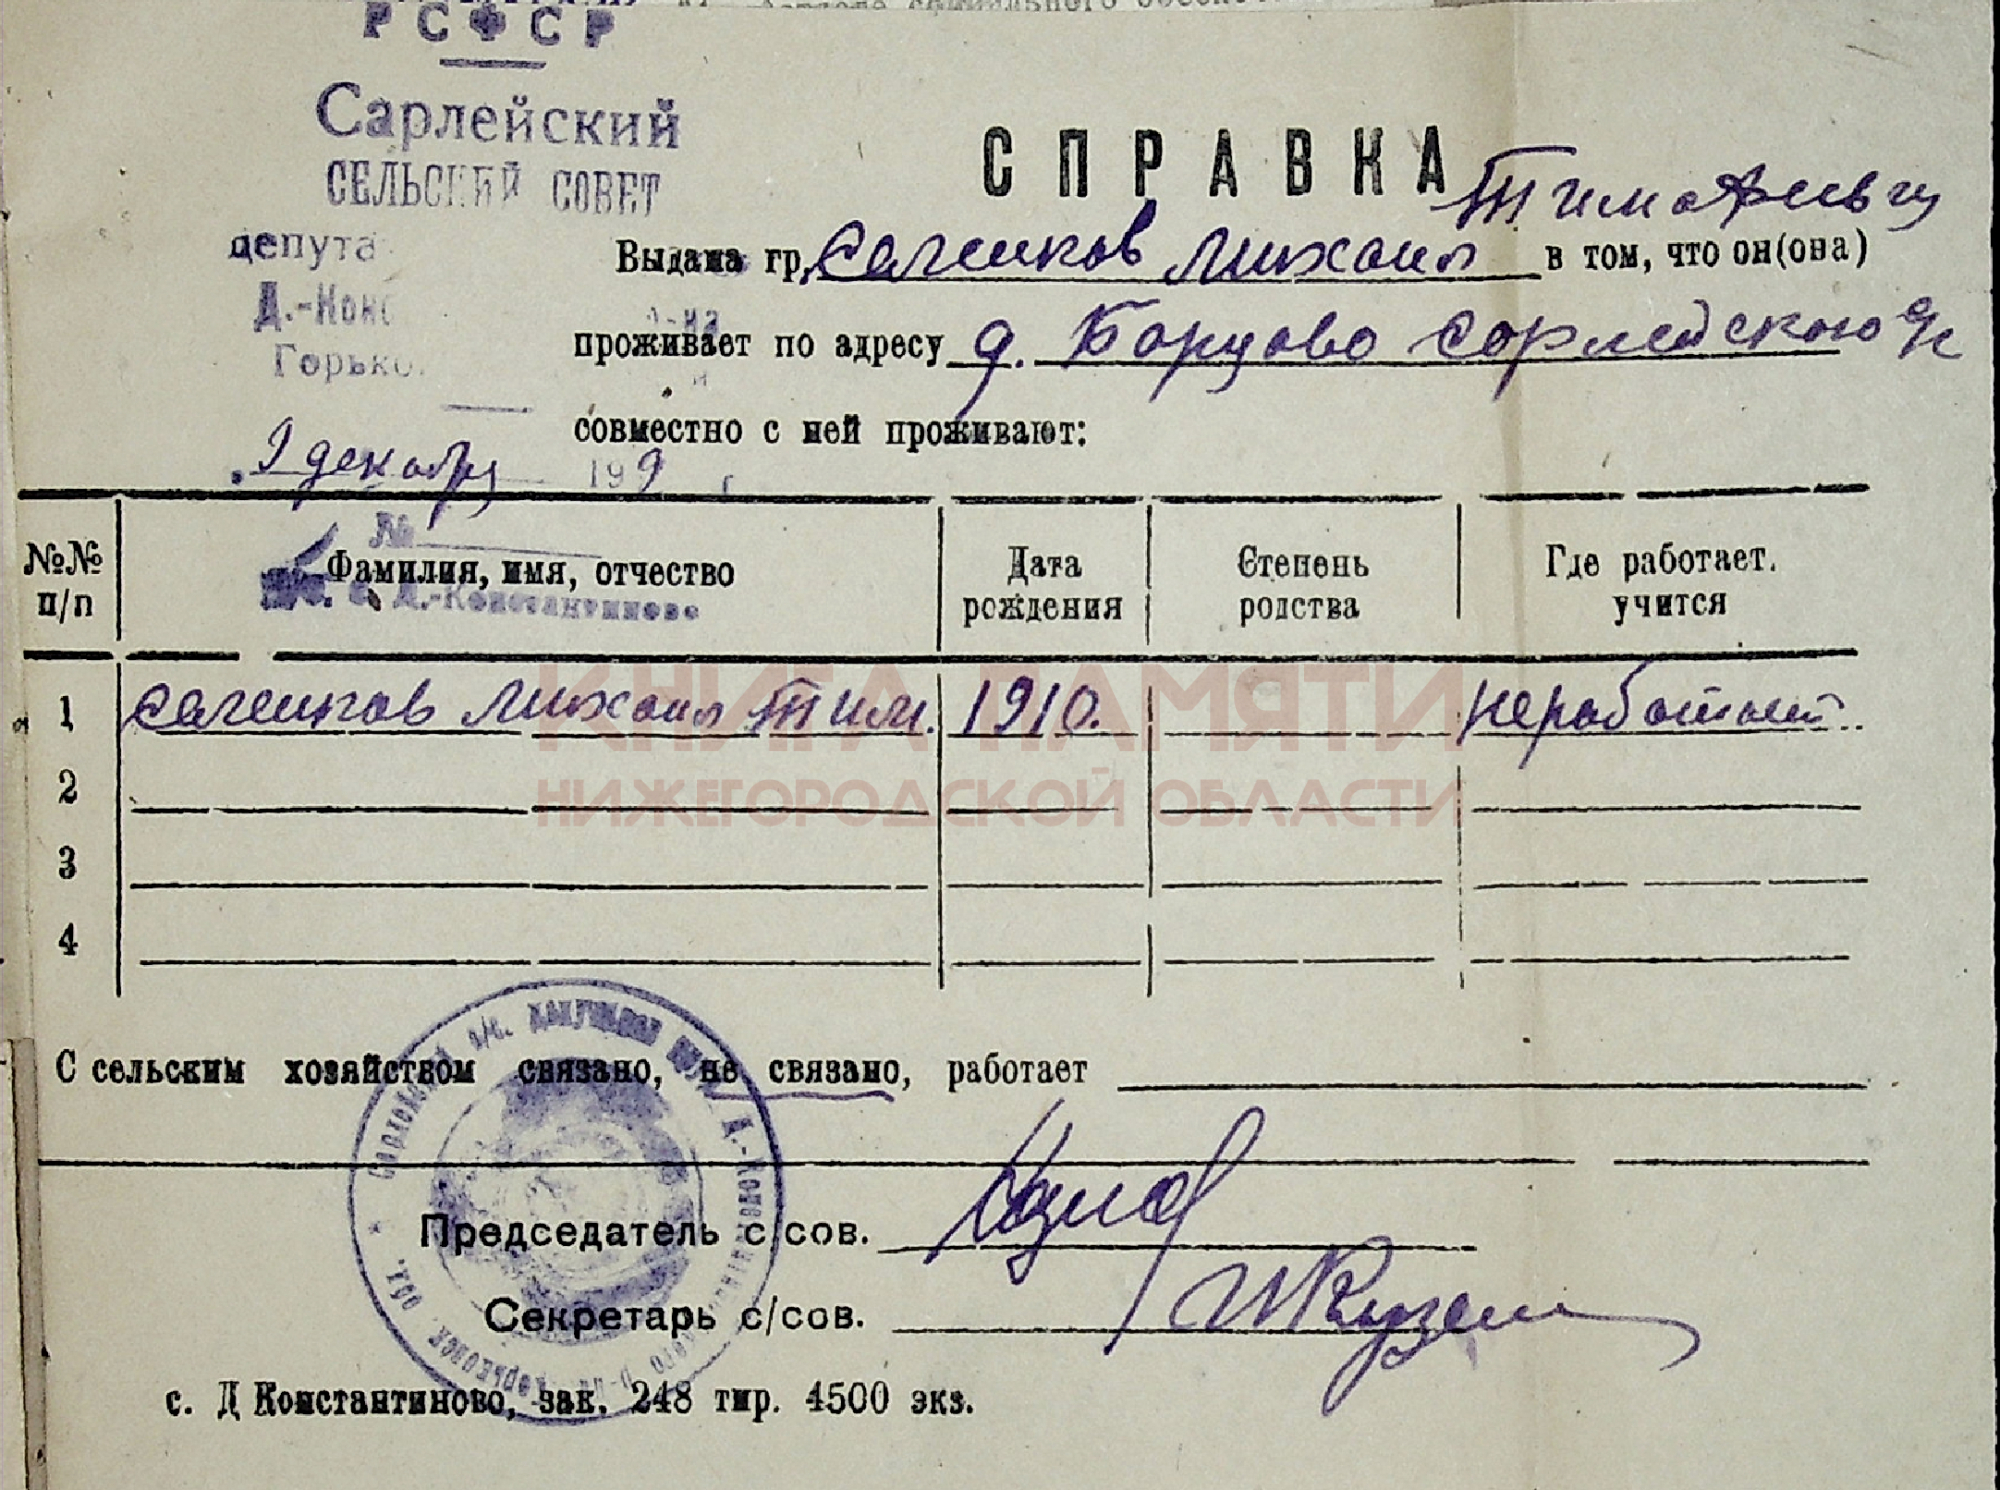 РСФСР
Сарлейский
СЕЛЬСКИЙ СОВЕТ
депута
Д.-Конс
Горько
9 декабря 199 г
№
Д.-Константиново
СПРАВКА
Тимофеевич
Выдана гр. Саленков Михаил в том, что он(она)
проживает по адресу д. Борцово Сарлейского с/с
совместно с ней проживают:
№№ п/п Фамилия, имя, отчество Дата рождения Степень родства Где работает. учится
1 Саленков Михаил Тим. 1910. не работает.
2
3
4
КНИГА ПАМЯТИ
НИЖЕГОРОДСКОЙ ОБЛАСТИ
С сельским хозяйством связано, не связано, работает
Председатель с/сов.
Секретарь с/сов.
с. Д Константиново, зак. 248 тир. 4500 экз.